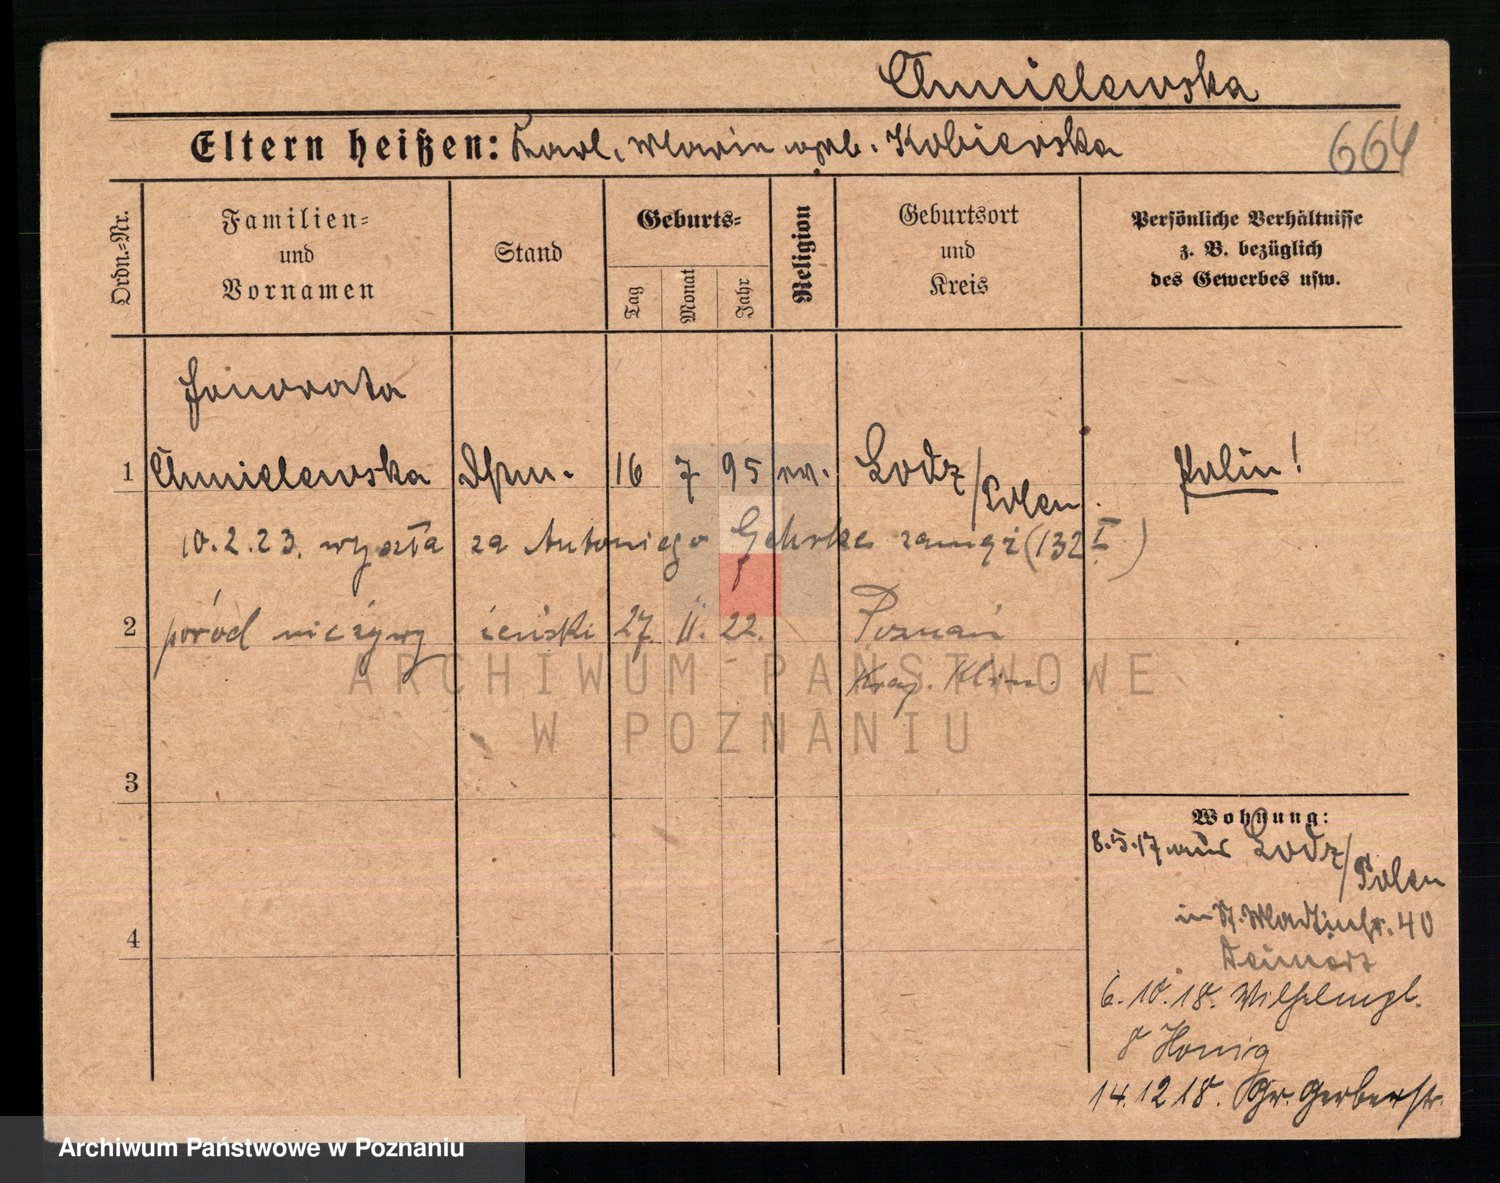 Chmielewska
Eltern heißen: Karl, Maria geb. Kobierska
664
Ordn.-Nr.
Familien- und Vornamen
Stand
Geburts-
Tag
Monat
Jahr
Religion
Geburtsort und Kreis
Persönliche Verhältnisse z. B. bezüglich des Gewerbes usw.
Honorata
1 Chmielewska 16 7 95 Lodz/Polen. Polin!
10.2.23. wyszła za Antoniego Gehrke zamąż (132 I)
2 poród nieżywy żeński 27. II. 22. Poznań
Kraj. Klin.
3
4
Wohnung:
8.5.17 aus Lodz/Polen
in St. Martinstr. 40
6.10.18. Wilhelmpl.
8 Honig
14.12.18. Gr. Gerberstr.
ARCHIWUM PAŃSTWOWE
W POZNANIU
Archiwum Państwowe w Poznaniu